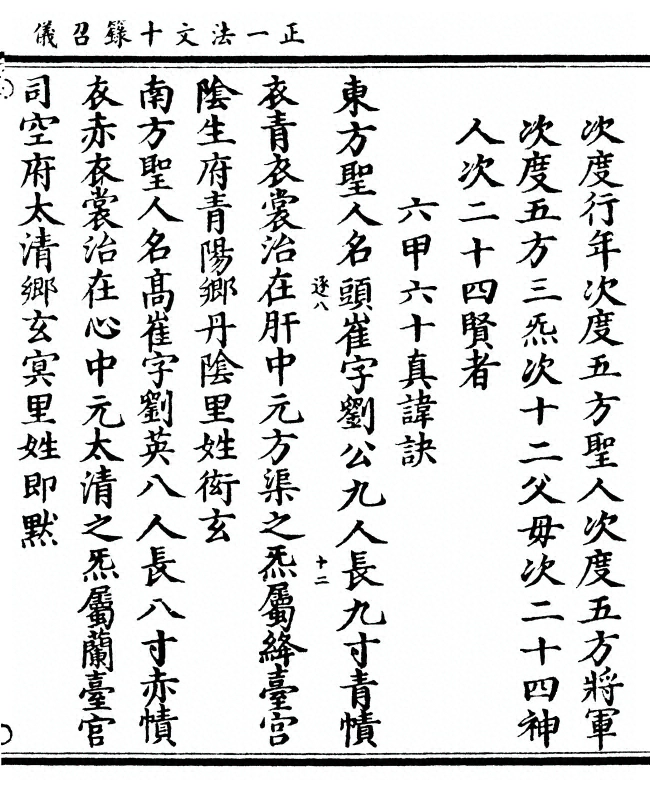 正一法文十籙召儀
次度行年次度五方聖人次度五方將軍
次度五方三炁次十二父毋次二十四神
人次二十四賢者
六甲六十真諱訣
東方聖人名頭崔字劉公九人長九寸青幘
逐八
十二
衣青衣裳治在肝中元方渠之炁屬絳臺宮
陰生府青陽鄉丹陰里姓衒玄
南方聖人名高崔字劉英八人長八寸赤幘
衣赤衣裳治在心中元太清之炁屬蘭臺宮
司空府太清鄉玄冥里姓即默